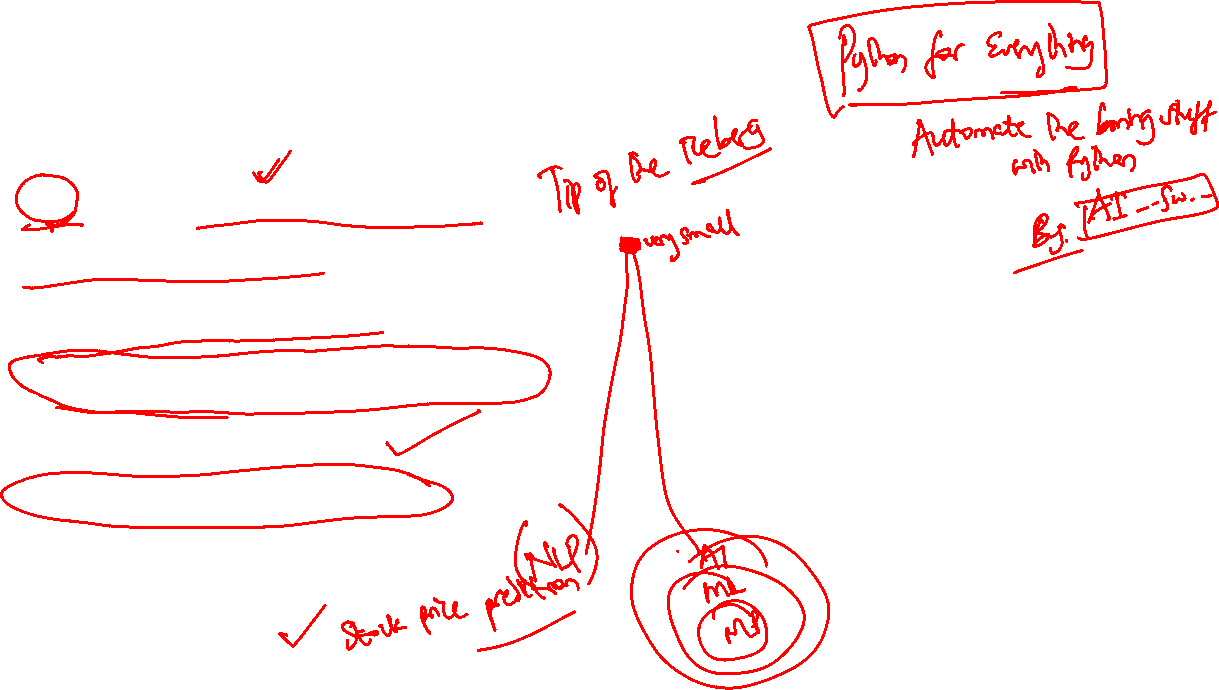 Python for Everything
Automate the boring stuff
with Python
By. AI
Tip of the Iceberg
very small
(NLP)
Stock price prediction
AI
ML